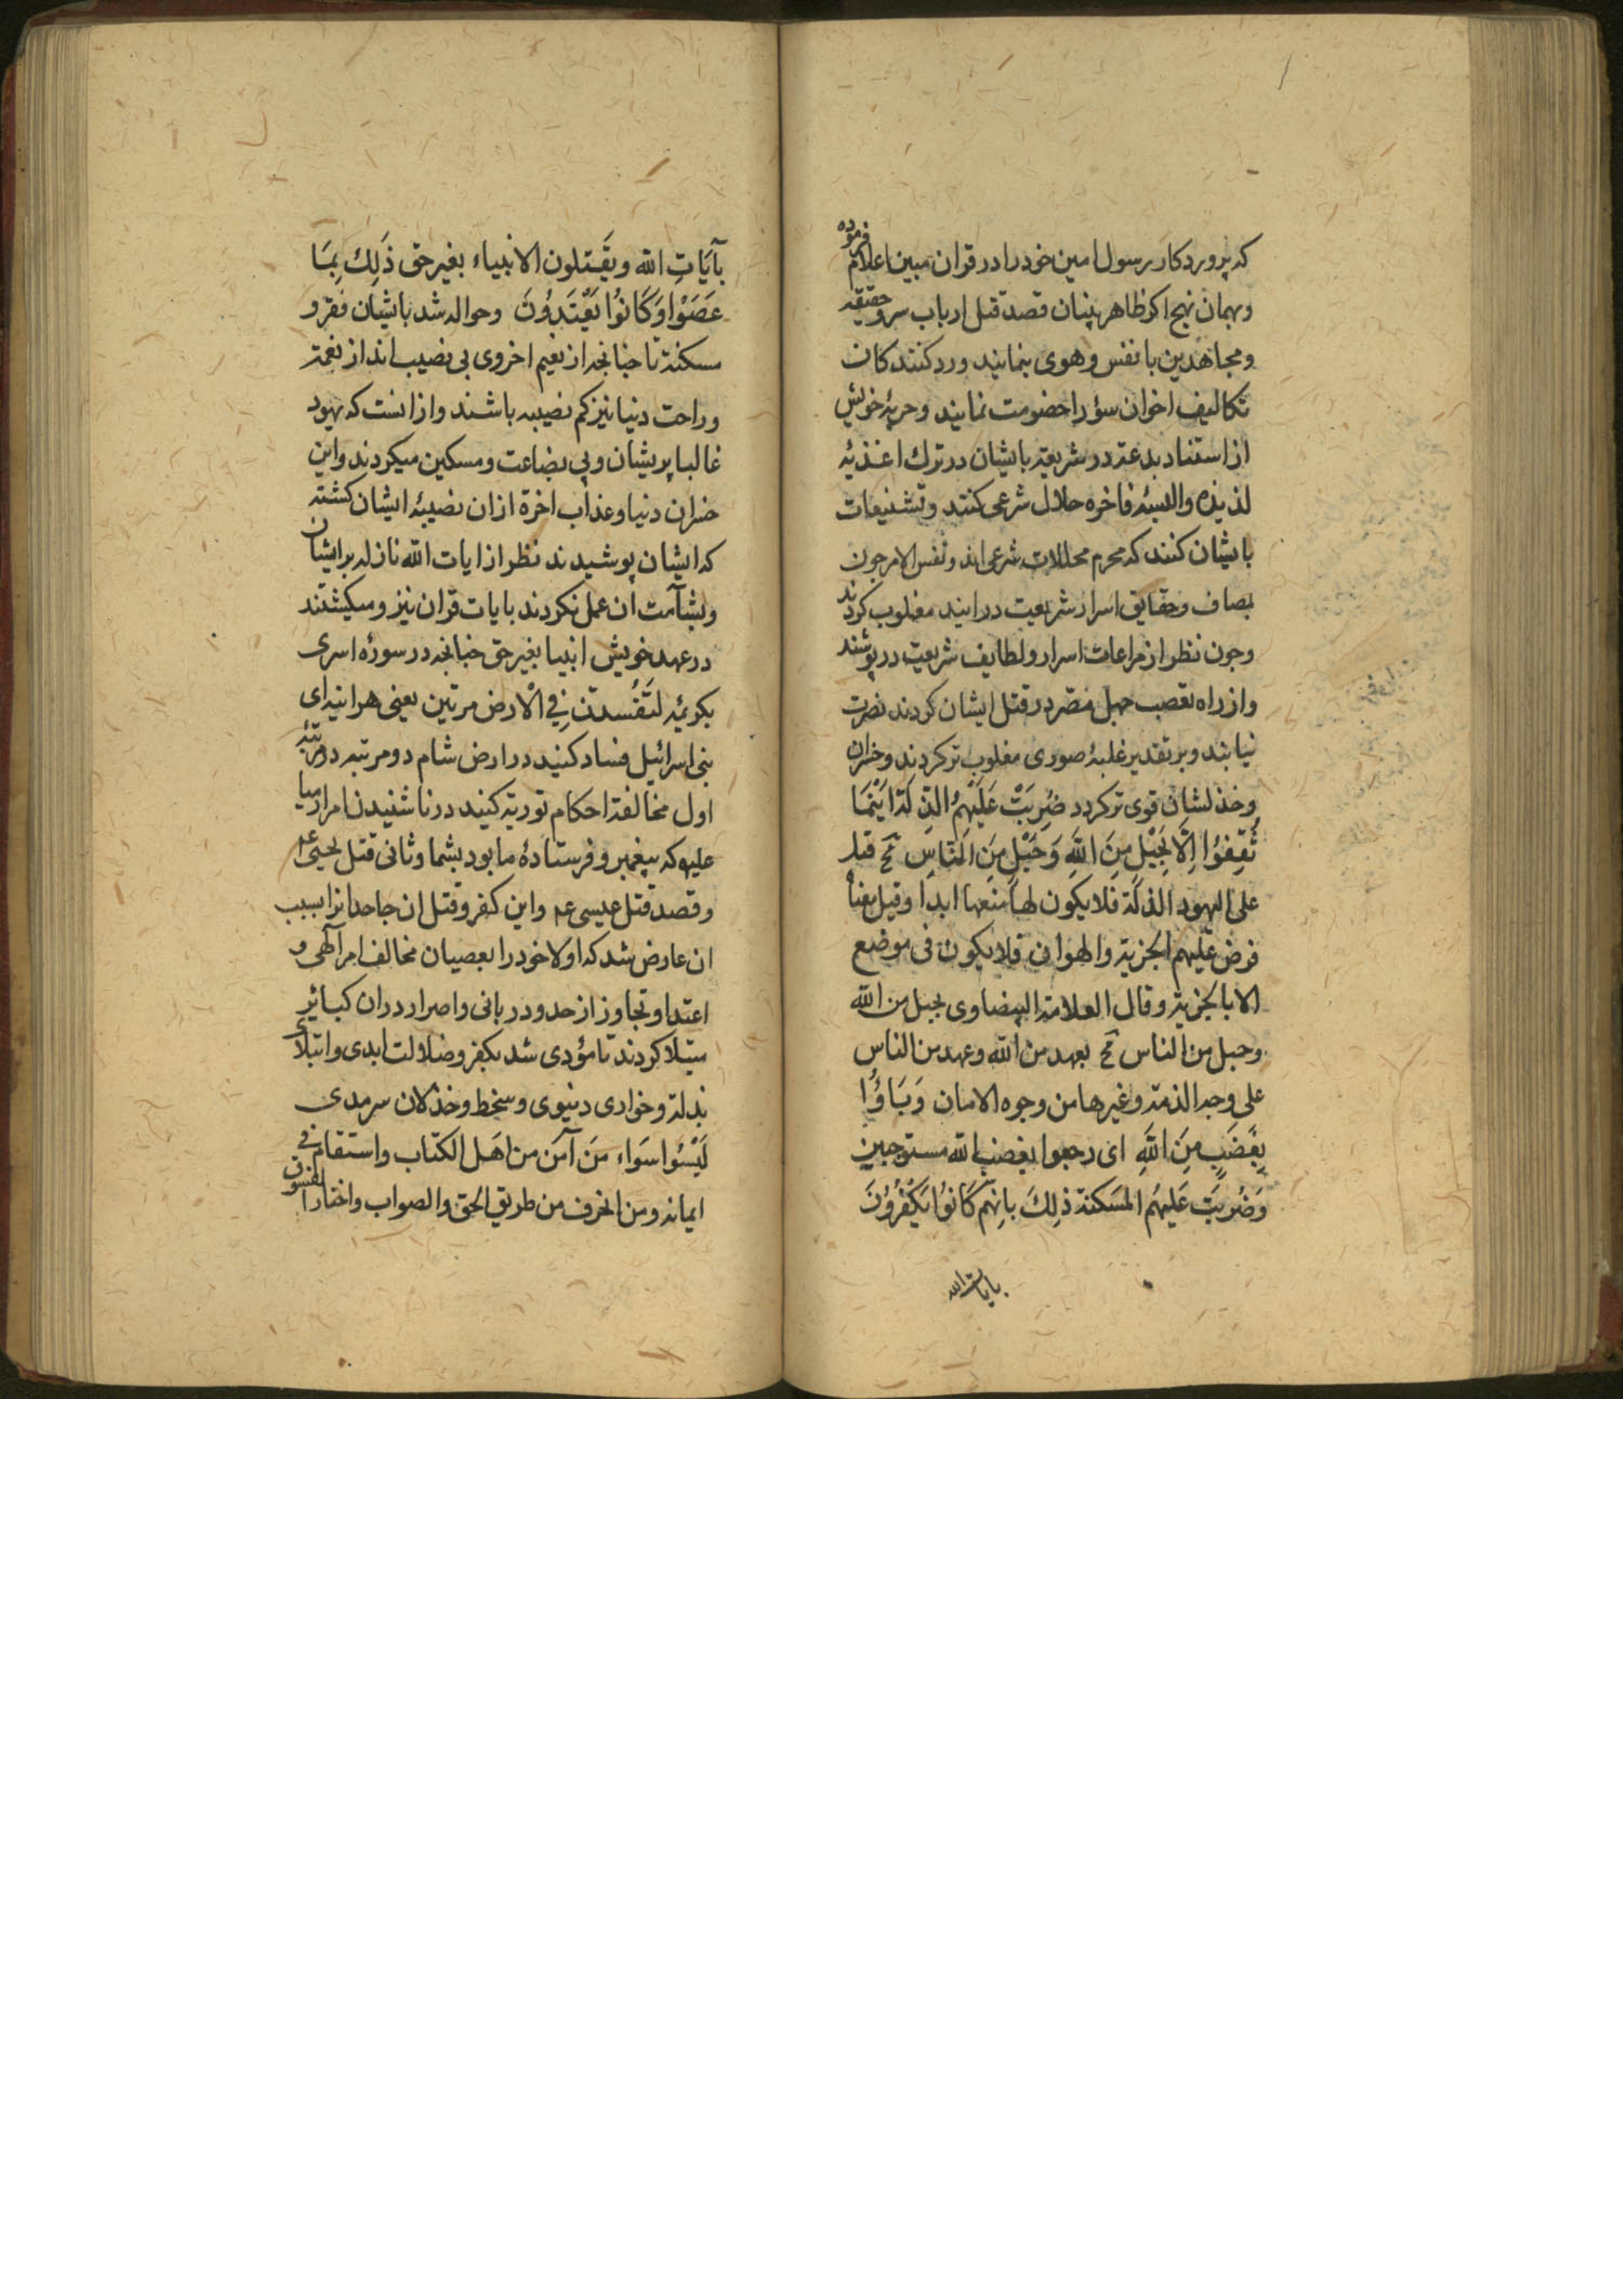 که پروردکار رسول امین خود را در قران مبین اعلام فرموده
وبهمان نهج اکر ظاهر بینان قصد قتل ارباب سر وحقیقه
ومجاهدین با نفس وهوی بنمایند ورد کنند کان
تکالیف اخوان سؤرا خصومت نمایند وحربهٔ خویش
از استناد بدعة در شریعة بایشان در ترك اغذیه
لذیذه والبسهٔ فاخره حلال شرعی کنند وتشنیعات
بایشان کنند که محرم محللات شرعی اند ونفس الامر جون
بمصاف وحقایق اسرار شریعت در ایند مغلوب کردند
وجون نظر از مراعات اسرار ولطایف شریعت در پوشند
واز راه تعصب جهل مصر در قتل ایشان کردند نصرت
نیابند وبر تقدیر غلبهٔ صوری مغلوب تر کردند وخسران
وخذلشان قوی تر کردد ضُرِبَتْ عَلَیْهِمُ الذِّلَّةُ اَیْنَمَا
ثُقِفُوْا اِلَّا بِحَبْلٍ مِنَ اللهِ وَحَبْلٍ مِنَ النَّاسِ قیل
علی الیهود الذلة فلا یکون لها منعها ابدا وقیل یعنا
فرض علیهم الجزیة والهوان فلا یکون فی موضع
الا بالجزیة وقال العلامة البیضاوی بحبل من الله
وحبل من الناس بعهد من الله وعهد من الناس
علی وجه الذمة وغیرها من وجوه الامان وَبَاؤُا
بِغَضَبٍ مِنَ اللهِ ای رجعوا بغضب الله مستوجبین
وَضُرِبَتْ عَلَیهِمُ المَسکنة ذٰلِكَ بِانَّهِمْ کَانُوْا یَکْفُرُوْنَ
بایات الله
بآیَاتِ الله ویَقتلون الانبیاء بغیر حق ذَلِك بِمَا
عَصَوْا وَکَانُوْا یَعْتَدُوْنَ وحواله شد بایشان فقر و
مسکنة تا جنانجه از نعیم اخروی بی نصیب اند از نعمة
وراحت دنیا نیز کم نصیبه باشند واز انست که یهود
غالبا پریشان وبی بضاعت ومسکین میکردند واین
خسران دنیا وعذاب اخرة ازان نصیبهٔ ایشان کشته
که ایشان پوشیدند نظر از ایات الله نازله بر ایشان
وبشآمت ان عمل نکردند بایات قران نیز ومیکشتند
در عهد خویش انبیا بغیر حق جنانجه در سورهٔ اسری
بکوید لَتُفْسدنَّ فِی الْارض مرتین یعنی هر اینه ای
بنی اسرائیل فساد کنید در ارض شام دو مرتبه در مرتبهٔ
اول مخالفة احکام توریة کنید در ناشنیدن امر ارمیا
علیه که پیغمبر وفرستادهٔ ما بود بشما وثانی قتل یحیی عم
وقصد قتل عیسی عم واین کفر وقتل ان جاحدانرا بسبب
ان عارض شد که اولا خود را بعصیان مخالف امر آلهی و
اعتدا وتجاوز از حدود ربانی واصرار دران کبائر
مبتلا کردند تا مؤدی شد بکفر وضلالت ابدی وابتلای
بذلة وخواری دنیوی وسخط وخذلان سرمدی
لَیْسُوا سَوَاء مَن آمَن من اهل الکتاب واستقام فی
ایمانه ومن انحرف من طریق الحق والصواب واختار الفسوق